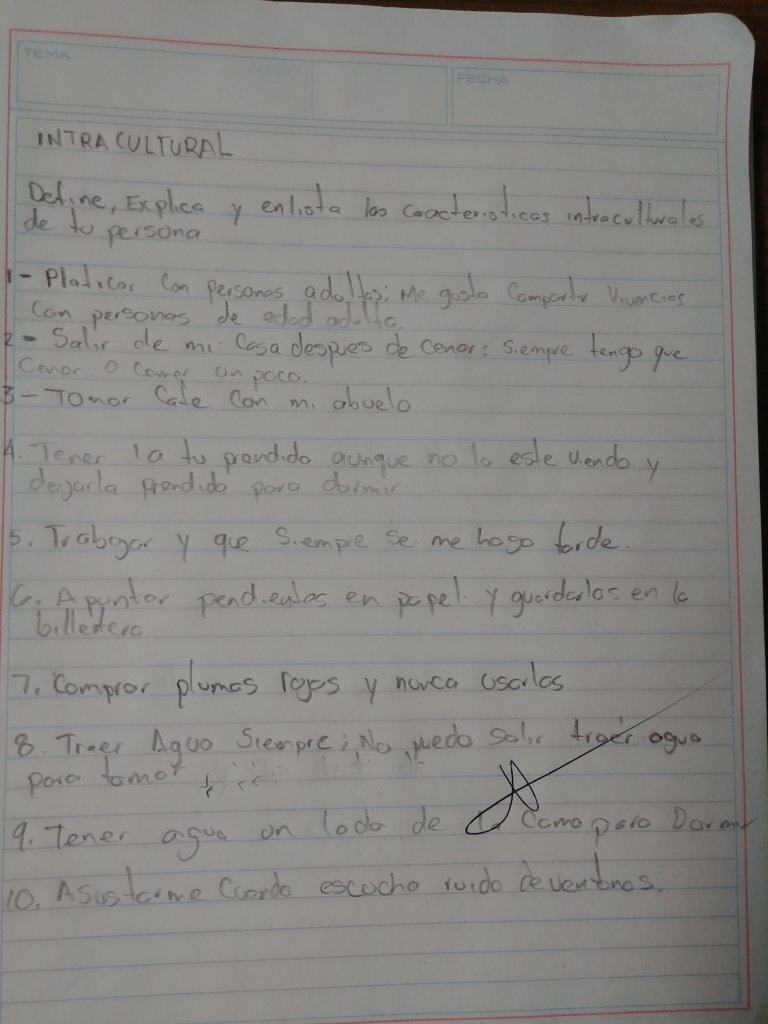 TEMA
FECHA
INTRACULTURAL
Define, Explica y enlista las caracteristicas intraculturales
de tu persona
1- Platicar con personas adultas; Me gusta compartir vivencias
con personas de edad adulta.
2- Salir de mi casa despues de cenar: siempre tengo que
cenar o comer un poco.
3- Tomar cafe con mi abuelo
4. Tener la tv prendida aunque no la este viendo y
dejarla prendida para dormir
5. Trabajar y que siempre se me haga tarde.
6. Apuntar pendientes en papel y guardarlos en la
billetera
7. Comprar plumas rojas y nunca usarlas
8. Traer Agua Siempre; No puedo salir traer agua
para tomar
9. Tener agua un lado de la cama para Dormir
10. Asustarme cuando escucho ruido de ventanas.